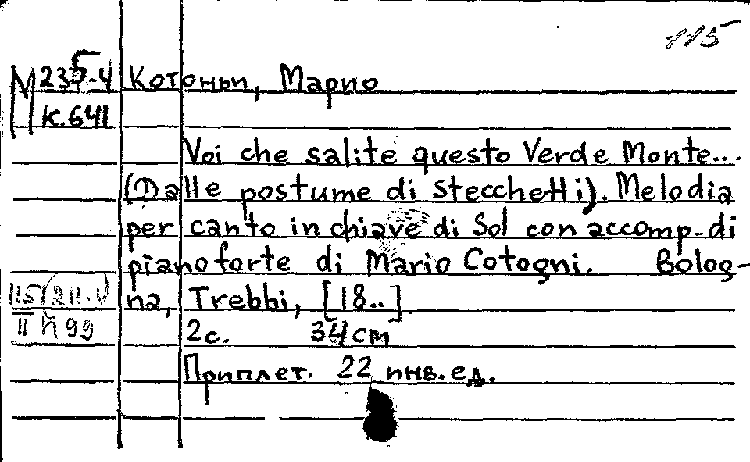 115
М 235-4 Котоньи, Марио
к.641
Voi che salite questo Verde Monte...
(Dalle postume di Stecchetti). Melodia
per canto in chiave di Sol con accomp. di
pianoforte di Mario Cotogni. Bolog-
na, Trebbi, [18..].
II н 99 2с. 34cm
Приплет. 22 инв. ед.